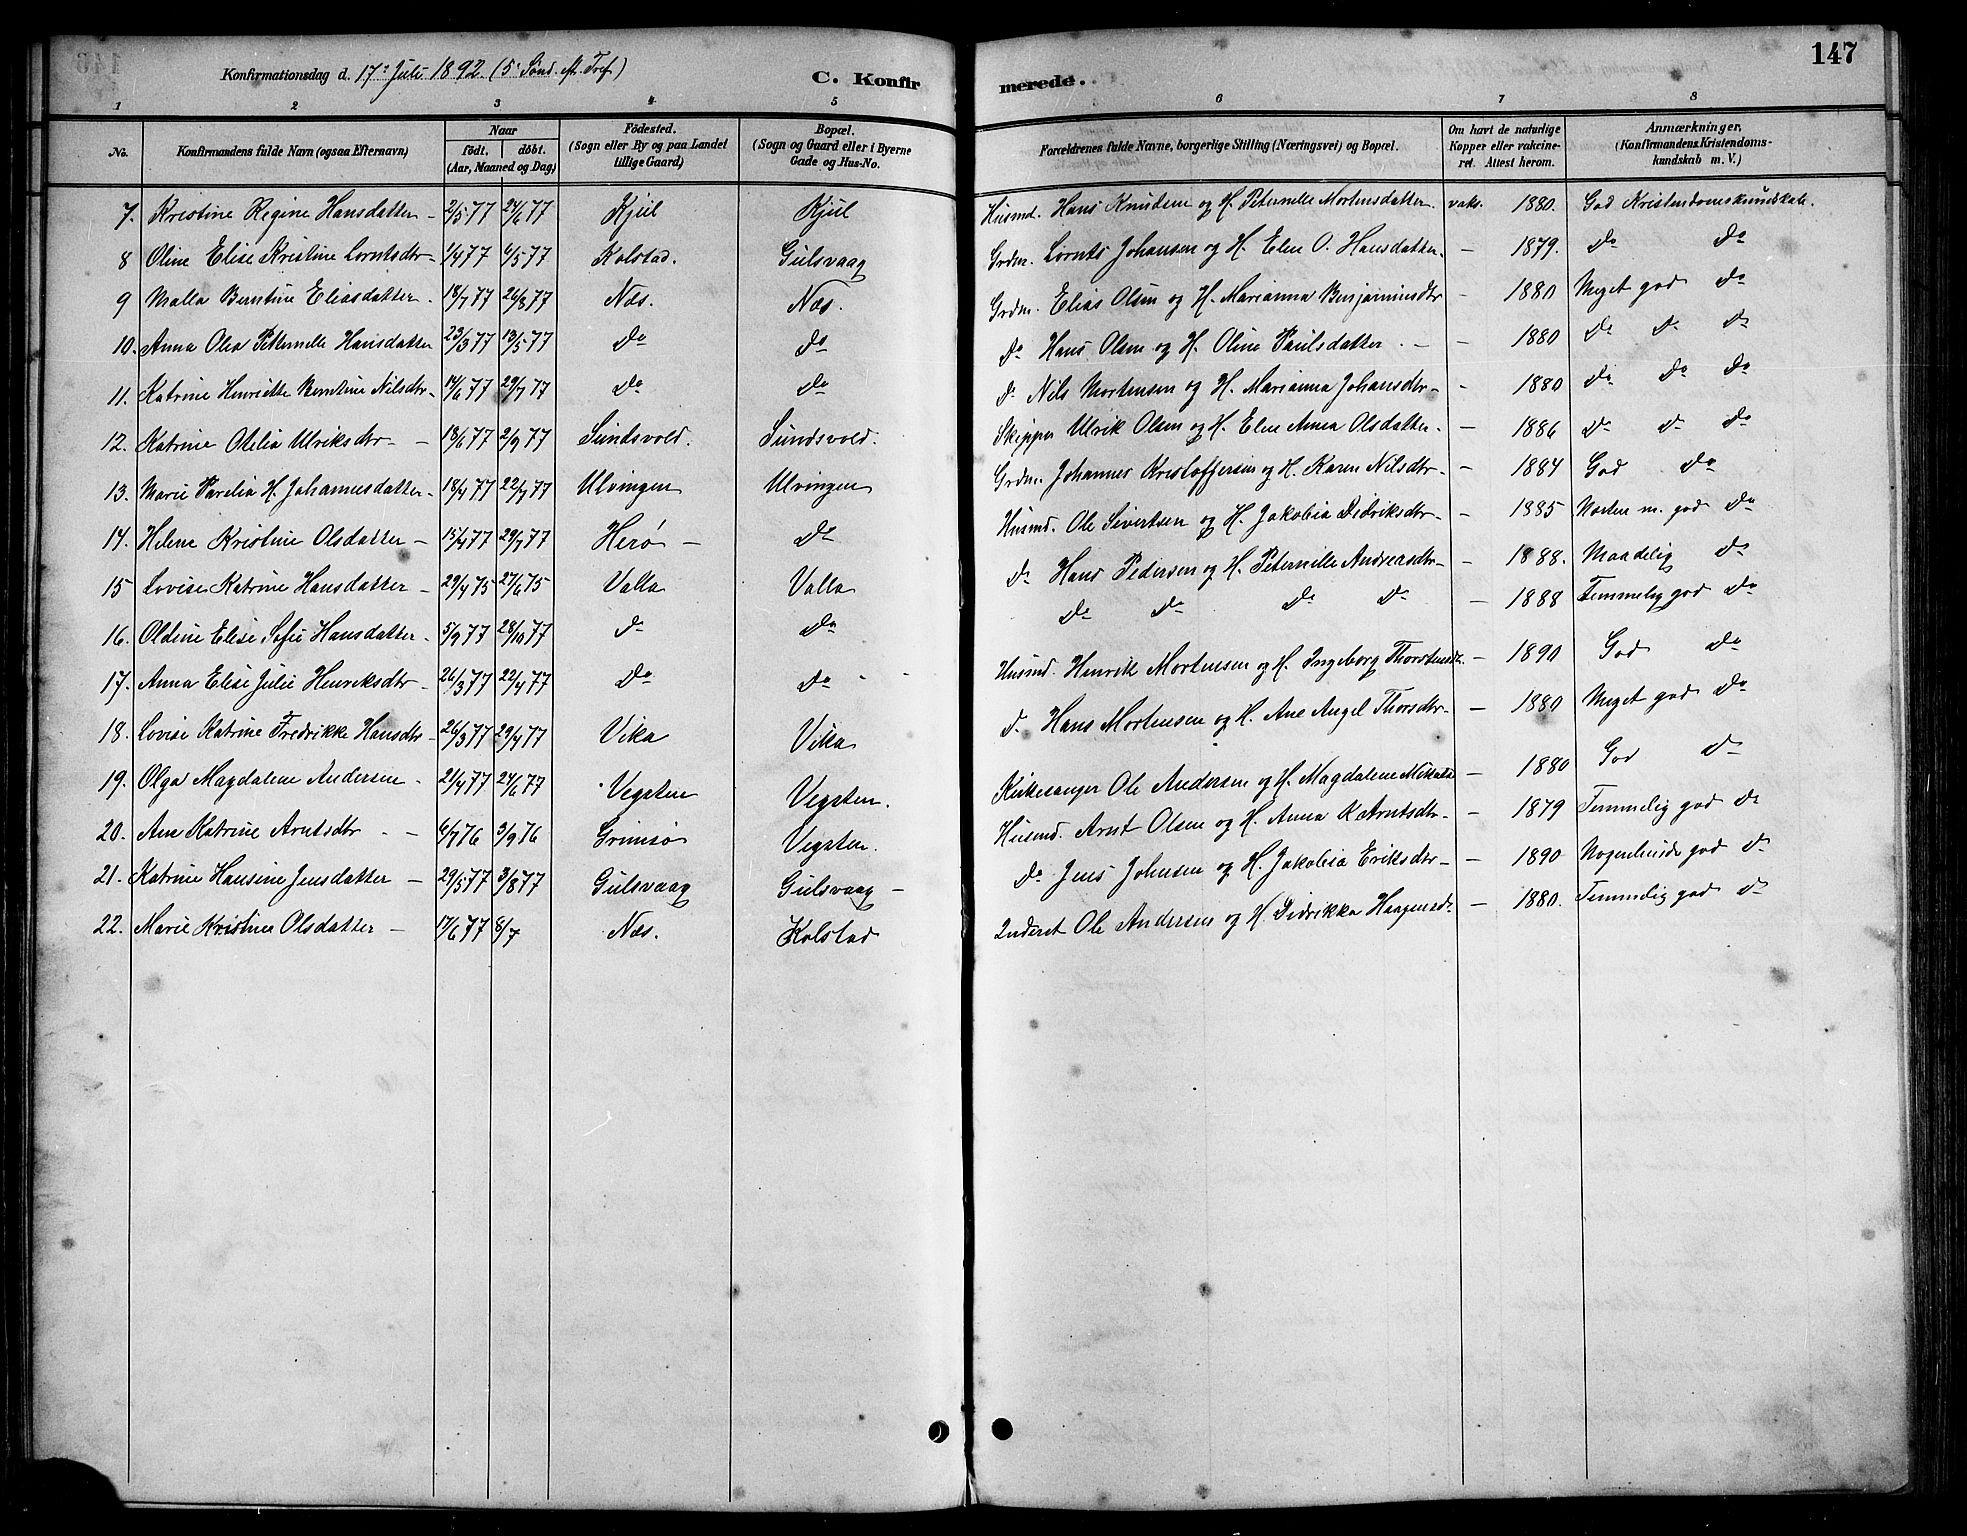 147
Konfirmationsdag d. 17de Juli 1892. (5 Sönd. eft. Tref.)
C. Konfirmerede.
1 2 3 4 5 6 7 8
No. Konfirmandens fulde Navn (ogsaa Efternavn) Naar födt. döbt. (Aar, Maaned og Dag) Födested. (Sogn eller By og paa Landet tillige Gaard) Bopæl. (Sogn og Gaard eller i Byerne Gade og Hus-No. Forældrenes fulde Navne, borgerlige Stilling (Næringsvei) og Bopæl. Om havt de naturlige Kopper eller vakcineret. Attest herom. Anmærkninger, (Konfirmandens Kristendomskundskab m. V.)
7. Kristine Regine Hansdatter - 2/5 77 24/6 77 Kjul Kjul Husmd. Hans Knudsen og H. Peternille Mortensdatter. vaks. 1880. God Kristendomskundskab.
8 Oline Elise Kristine Lorntsdtr - 1/4 77 6/5 77 Kolstad. Gulsvaag Grdm. Lornts Johansen og H. Elen O. Hansdatter. - 1879. do do
9 Malla Berntine Eliasdatter. 18/7 77 26/8 77 Næs. Næs. Grdm. Elias Olsen og H. Marianna Benjaminsdtr - 1880 Meget god do
10. Anna Olea Petternelle Hansdatter 23/3 77 13/5 77 do do do Hans Olsen og H. Oline Paulsdatter. - - 1880 do do do
11. Katrine Henriette Berntine Nilsdtr - 14/6 77 29/7 77 do do do Nils Mortensen og H. Marianna Johansdtr - - 1880 do do do
12. Katrine Otelia Ulriksdtr - - 18/6 77 2/9 77 Sundsvold. Sundsvold. Skipper Ulrik Olsen og H. Elen Anna Olsdatter. - 1886 do do do
13. Marie Parelia H. Johannesdatter - 18/4 77 22/7 77 Ulvingen Ulvingen Grdm. Johannes Kristoffersen og H. Karen Nilsdtr - - 1884 God do
14. Helene Kristine Olsdatter - 15/4 77 29/7 77 Herö - do Husmd. Ole Sivertsen og H. Jakobia Didriksdtr - - 1885 Næsten m. god do
15 Lovise Katrine Hansdatter - 29/4 75 27/6 75 Valla Valla do Hans Pedersen og H. Peternille Andreasdtr - - 1888. Maadelig do
16. Oldine Elise Sofie Hansdatter. 5/9 77 28/10 77 do do do do do do - 1888 Temmelig god do
17. Anna Elise Julie Henriksdtr - 26/3 77 22/4 77 do do Husmd. Henrik Mortensen og H. Ingeborg Thorstensdtr. - 1890 God do
18. Lovise Katrine Fredrikke Hansdtr - 26/3 77 29/4 77 Vika Vika do Hans Mortensen og H. Ane Angel Thorsdtr - - 1880 Meget god do
19. Olga Magdalene Andersen - 21/4 77 24/6 77 Vegsten Vegsten. Kirkesanger Ole Andersen og H. Magdalene - 1880 God do
20. Ane Katrine Arntsdtr - - 6/7 76 3/9 76 Grimsö Vegsten. Husmd. Arnt Olsen og H. Anna K. Arntsdtr - - 1879 Temmelig god do
21. Katrine Hansine Jensdatter - 29/5 77 3/8 77 Gulsvaag Gulsvaag - do Jens Johnsen og H. Jakobia Eriksdtr - - 1890 Nogenlunde god do
22. Marie Kristine Olsdatter - 17/6 77 8/7 Næs. Kolstad Inderst Ole Andersen og H. Didrikka Haagensd. - 1880. Temmelig god do